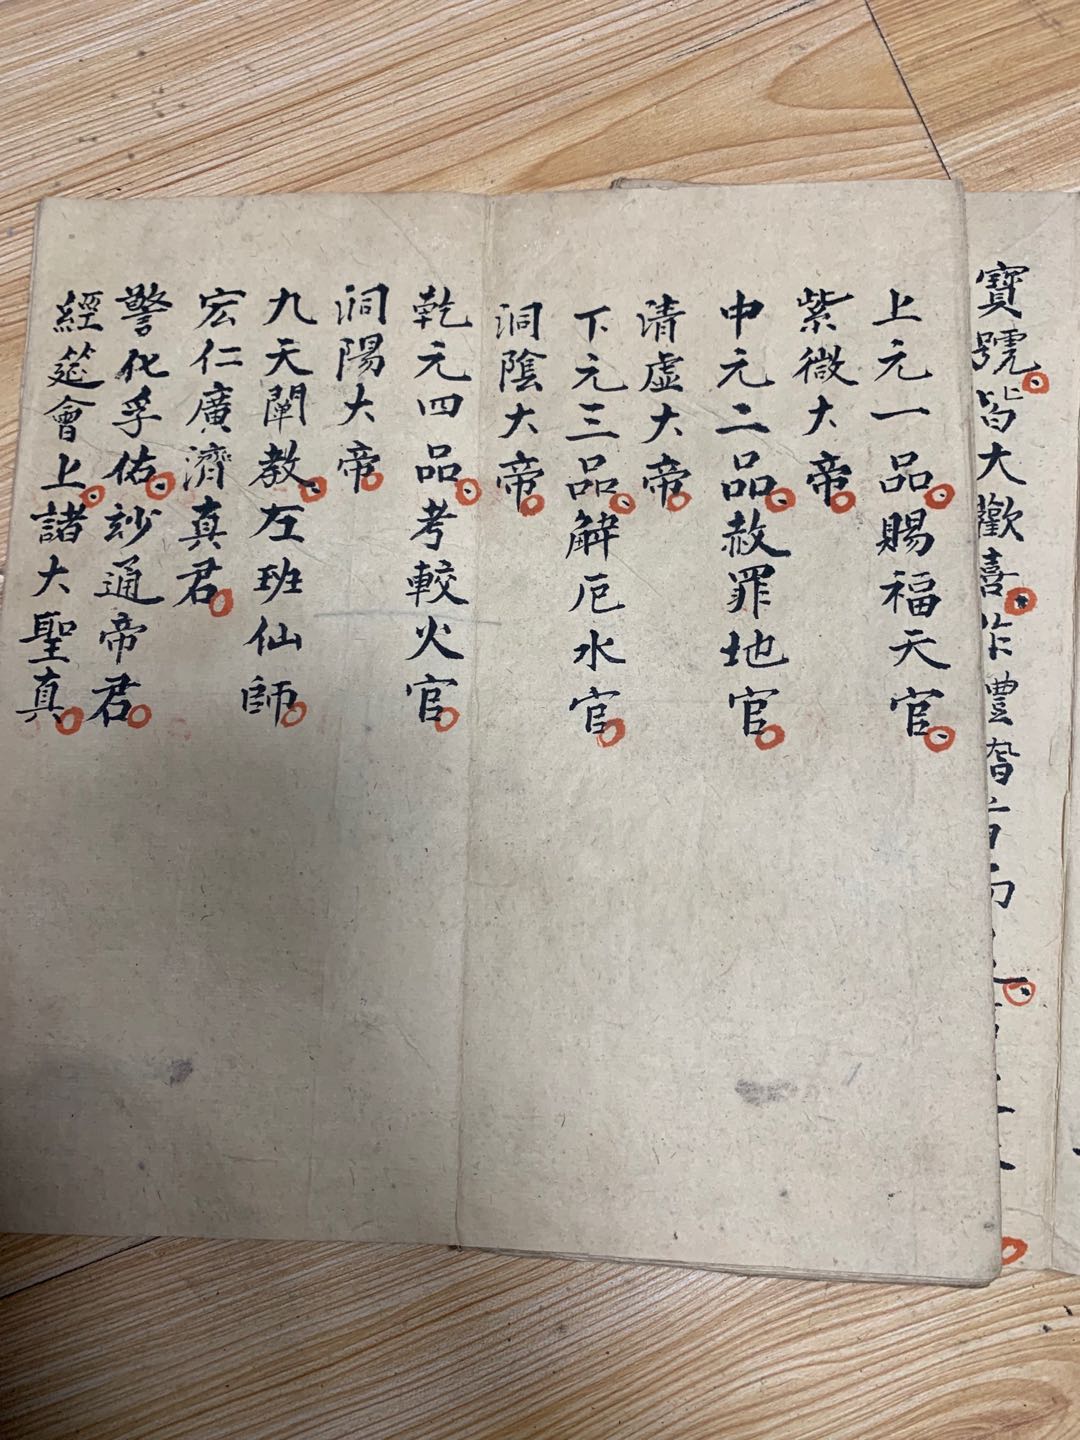 寶號皆大歡喜作禮
上元一品賜福天官
紫微大帝
中元二品赦罪地官
清虛大帝
下元三品解厄水官
洞陰大帝
乾元四品考較火官
洞陽大帝
九天闡教左班仙師
宏仁廣濟真君
警化孚佑妙通帝君
經筵會上諸大聖真